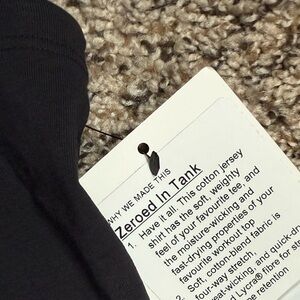 WHY WE MADE THIS
Zeroed In Tank
1. Have it all. This cotton jersey
shirt has the soft, weighty
feel of your favourite tee, and
the moisture-wicking and
fast-drying properties of your
favourite workout top
2. Soft, cotton-blend fabric is
four-way stretch,
sweat-wicking, and quick-dr
Lycra® fibre for str
retention